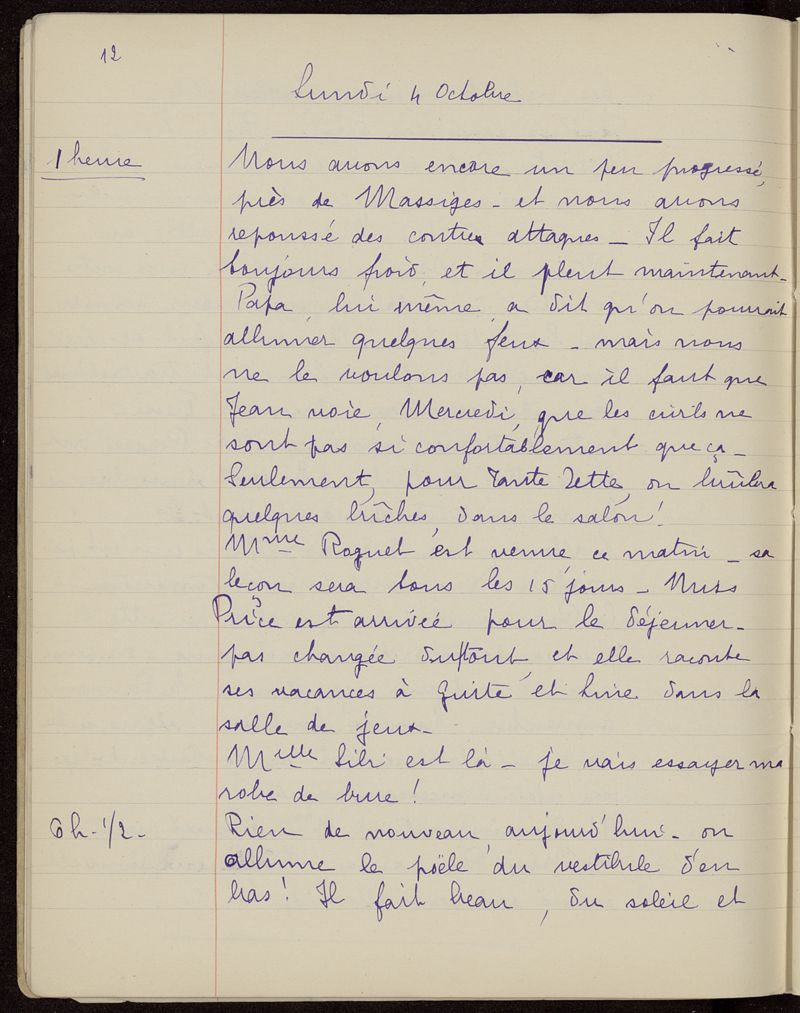 12
Lundi 4 Octobre
1 heure
Nous avons encore un peu progressé,
près de Massiges - et nous avons
repoussé des contre attaques - Il fait
toujours froid, et il pleut maintenant -
Papa, lui même, a dit qu'on pourrait
allumer quelques feux - mais nous
ne le voulons pas, car il faut que
Jean voie, Mercredi, que les civils ne
sont pas si confortablement que ça -
Seulement, pour Tante Zette, on brûlera
quelques bûches, dans le salon!
Mme Roquet est venue ce matin - sa
leçon sera tous les 15 jours - Miss
Price est arrivée pour le déjeuner -
pas changée du tout, et elle raconte
ses vacances à Guite et dans la
salle de jeux -
Melle Sibi est là - je vais essayer ma
robe de bure!
6 h - 1/2 -
Rien de nouveau, aujourd'hui - on
allume le poële du vestibule d'en
bas! Il fait beau, du soleil et